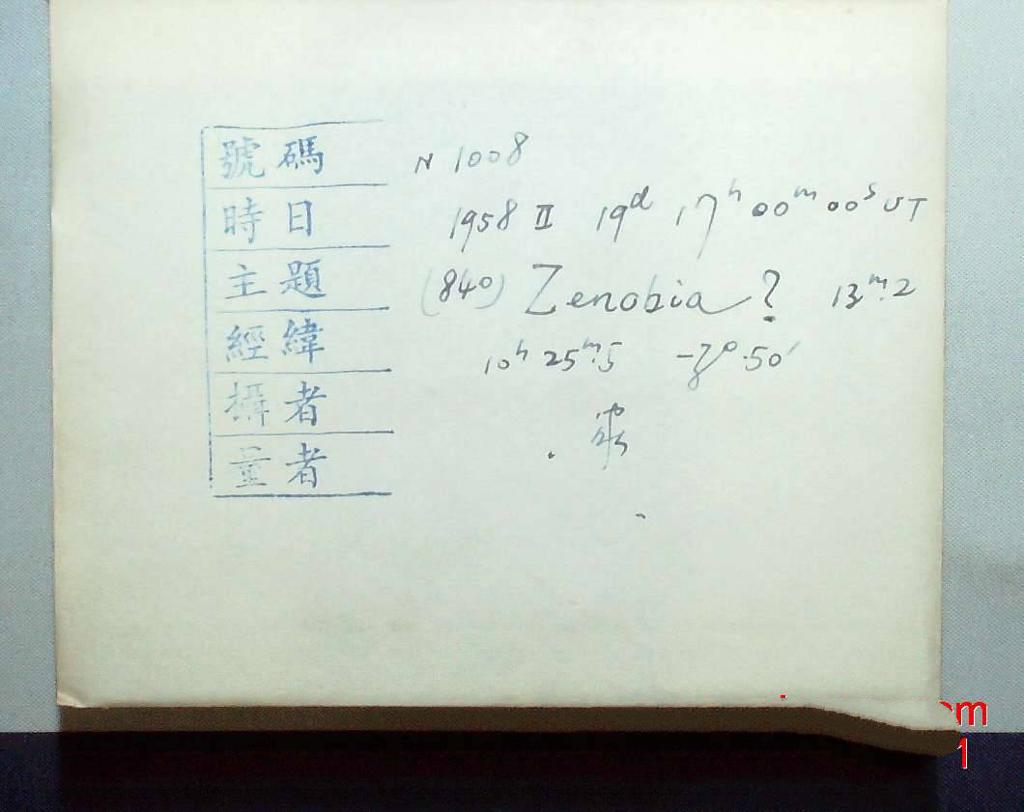 號碼 N 1008
時日 1958 II 19ᵈ 17ʰ 00ᵐ 00ˢ UT
主題 (840) Zenobia? 13ᵐ.2
經緯 10ʰ 25ᵐ.5 50'
攝者
量者